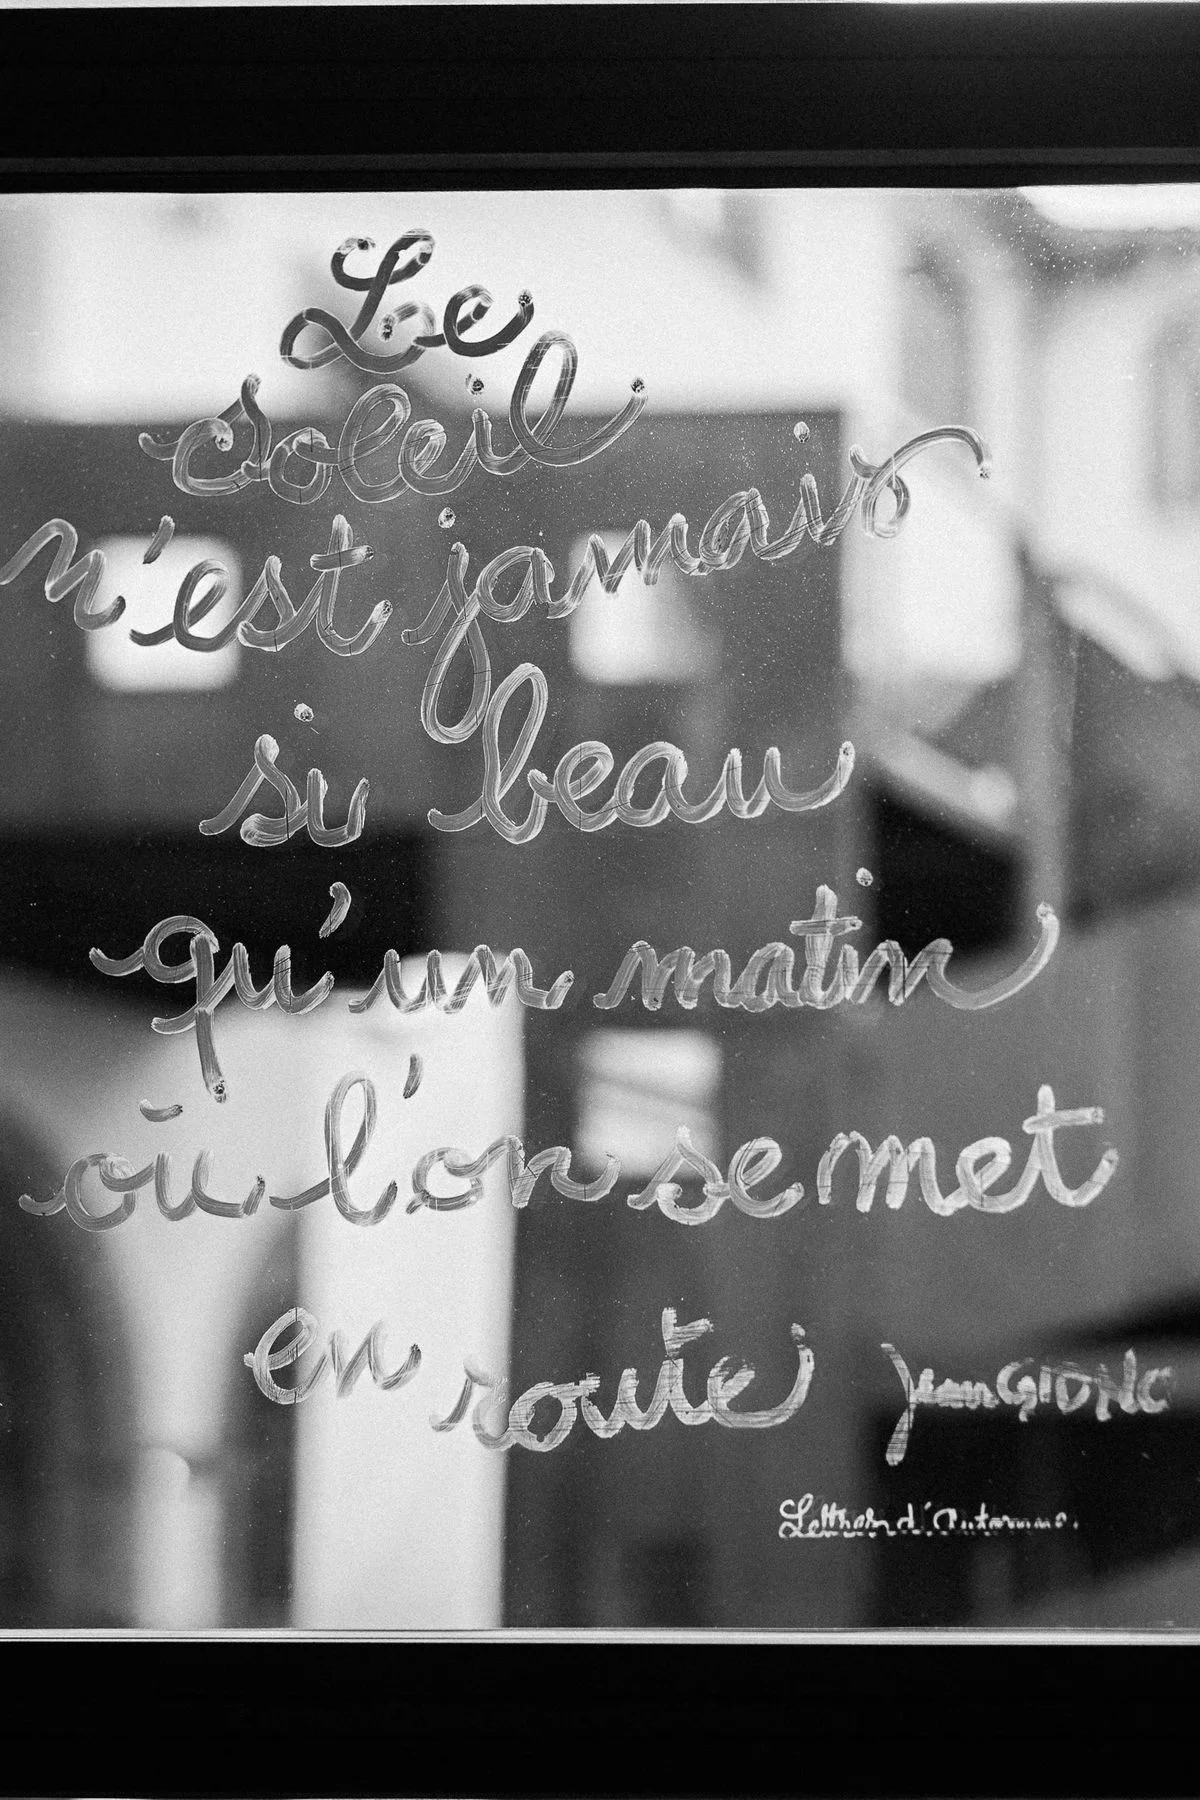 Le
soleil
n'est jamais
si beau
qu'un matin
où l'on se met
en route Jean GIONO
Lettres d'Automne.